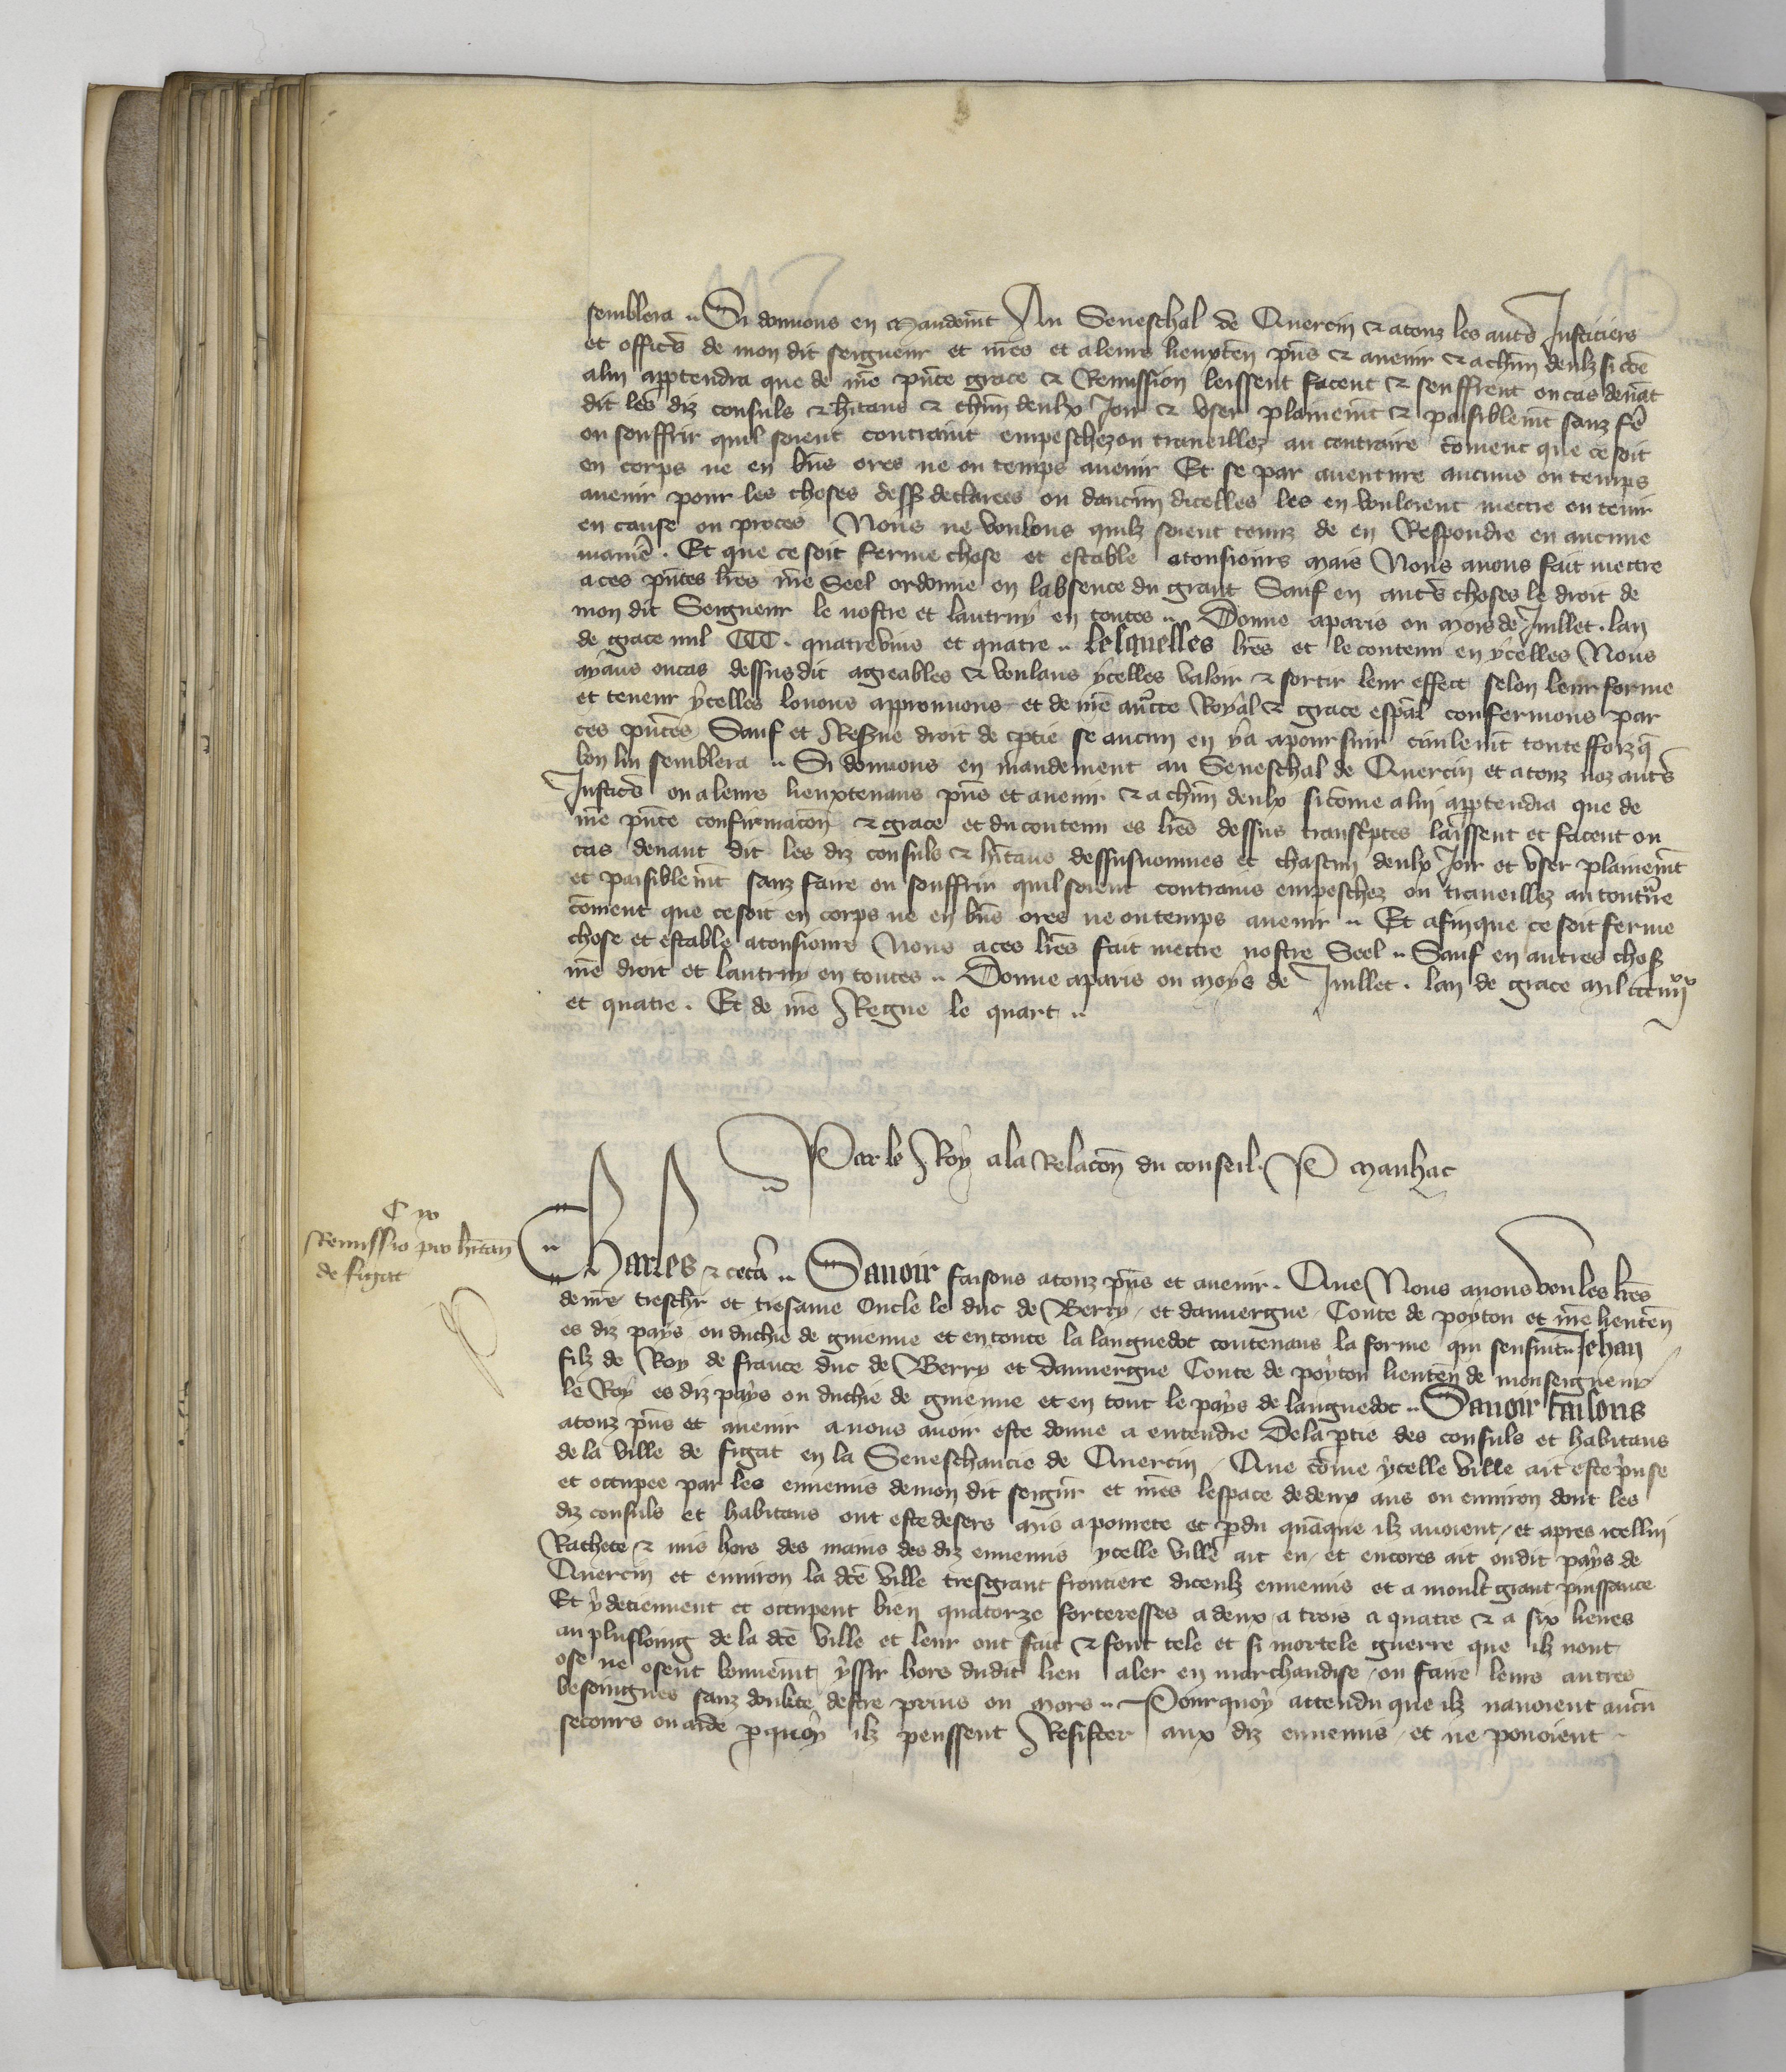 semblera .. Si donnons en Mandemt Au Seneschal de Quercin & a touz les autrs Justiciers
et officrs de mon dit seigneur et nres et a leurs lieuxten pns & avenir & a chun deulx si cõe
a lui apptendra que de nre pnte grace & Remission leissent facent & seuffrent ou cas devãt
dit les diz consuls & hitans & chun deulx Joir & user plainemt & paisiblemt sanz fe
ou souffrir quil soient contraint empeschez ou traveillez au contraire cõment que ce soit
en corps ne en bns ores ne ou temps avenir Et se par aventure aucuns ou temps
avenir pour les choses dess declarees ou daucun dicelles les en vouloient mectre ou tenir
en cause ou proces Nous ne voulons quilz soient tenuz de en Respondre en aucune
manie . Et que ce soit ferme chose et estable a tousiours mais Nous avons fait mectre
a ces pntes lres nre Seel ordonne en labsence du grant Sauf en autrs choses le droit de
mon dit Seigneur le nostre et lautruy en toutes .. Donne a paris ou mois de Juillet . lan
de grace mil CCC . quatrevins et quatre .. lesquelles lres et le contenu en ycelles Nous
ayans ou cas dessusdit agreables & voulans ycelles valoir & sortir leur effect selon leur forme
et teneur ycelles louons approuvons et de nre aucte Royal & grace espal confermons par
ces pntes Sauf et Resve droit de ptie se aucun en y a a poursuir civilemt toutesforz q
bon lui semblera .. Si donnons en mandement au Seneschal de Quercin et a touz noz autrs
Justicrs ou a leurs lieuxtenans pns et avenir & a chun deulx si cõme a lui apptendra que de
nre pnte confirmacon & grace et du contenu es lres dessus transcptes laissent et facent ou
cas devant dit les diz consuls & hitans dessusnommes et chascun deulx Joir et user plainemt
et paisiblemt sanz faire ou souffrir quil soient contrains empeschez ou traveillez au contrre
cõment que ce soit en corps ne en bns ores ne ou temps avenir .. Et afin que ce soit ferme
chose et estable a tousiours Nous a ces lres fait mectre nostre Seel .. Sauf en autres chos
nre droit et lautruy en toutes .. Donne a paris ou moys de Juillet . lan de grace mil ccc iiijxx
et quatre . Et de nre Regne le quart ..
Par le Roy a la Relacon du conseil . P Manhac
Remissio pro hitan
de figat
Charles & cetera .. Savoir faisons a touz pns et avenir . Que Nous avons veu les lres
de nre treschr et tresame Oncle le duc de Berry et dauvergne Conte de poytou et nre lieuten
es diz pays ou duchie de guienne et en toute la languedoc contenans la forme qui sensuit .. Jehan
filz de Roy de france duc de Berry et dauvergne Conte de poytou lieuten de monseigneur
le Roy es diz pays ou duchie de guienne et en tout le pays de languedoc .. Savoir faisons
a touz pns et avenir a nous avoir este donne a entendre De la ptie des consuls et habitans
de la ville de figat en la Seneschaucie de Quercin / Que cõme ycelle ville ait este prise
et occupee par les ennemis de mon dit seigr et nres lespace de deux ans ou environ dont les
diz consuls et habitans ont este desers mis a povrete et pdu quãque ilz avoient / et apres icellui
Rachete & mis hors des mains des diz ennemis ycelle ville ait eu / et encores ait ou dit pays de
Quercin et environ la dce ville tresgrant frontiere diceulz ennemis et a moult grant puissance
Et y detiennent et occupent bien quatorze forteresses a deux a trois a quatre & a six lieues
au plusloing de la dce ville et leur ont fait & font tele et si mortele guerre que ilz nont
ose ne osent bonnemt yssir hors dudit lieu aler en marchandise / ou faire leurs autres
besoingnes sanz doubte destre prins ou mors .. Pourquoy attendu que ilz navoient aucũ
secours ou aide pquoy ilz peussent Resister aux diz ennemis et ne povoient